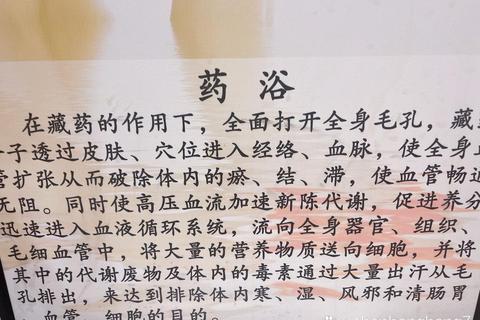 药浴
在藏药的作用下，全面打开全身毛孔，藏
子透过皮肤、穴位进入经络、血脉，使全身
管扩张从而破除体内的瘀、结、滞，使血管畅
无阻。同时使高压血流加速新陈代谢，促进养分
迅速进入血液循环系统，流向全身器官、组织、
毛细血管中，将大量的营养物质送向细胞，并将
其中的代谢废物及体内的毒素通过大量出汗从毛
孔排出，来达到排除体内寒、湿、风邪和清肠胃
、血管、细胞的目的。